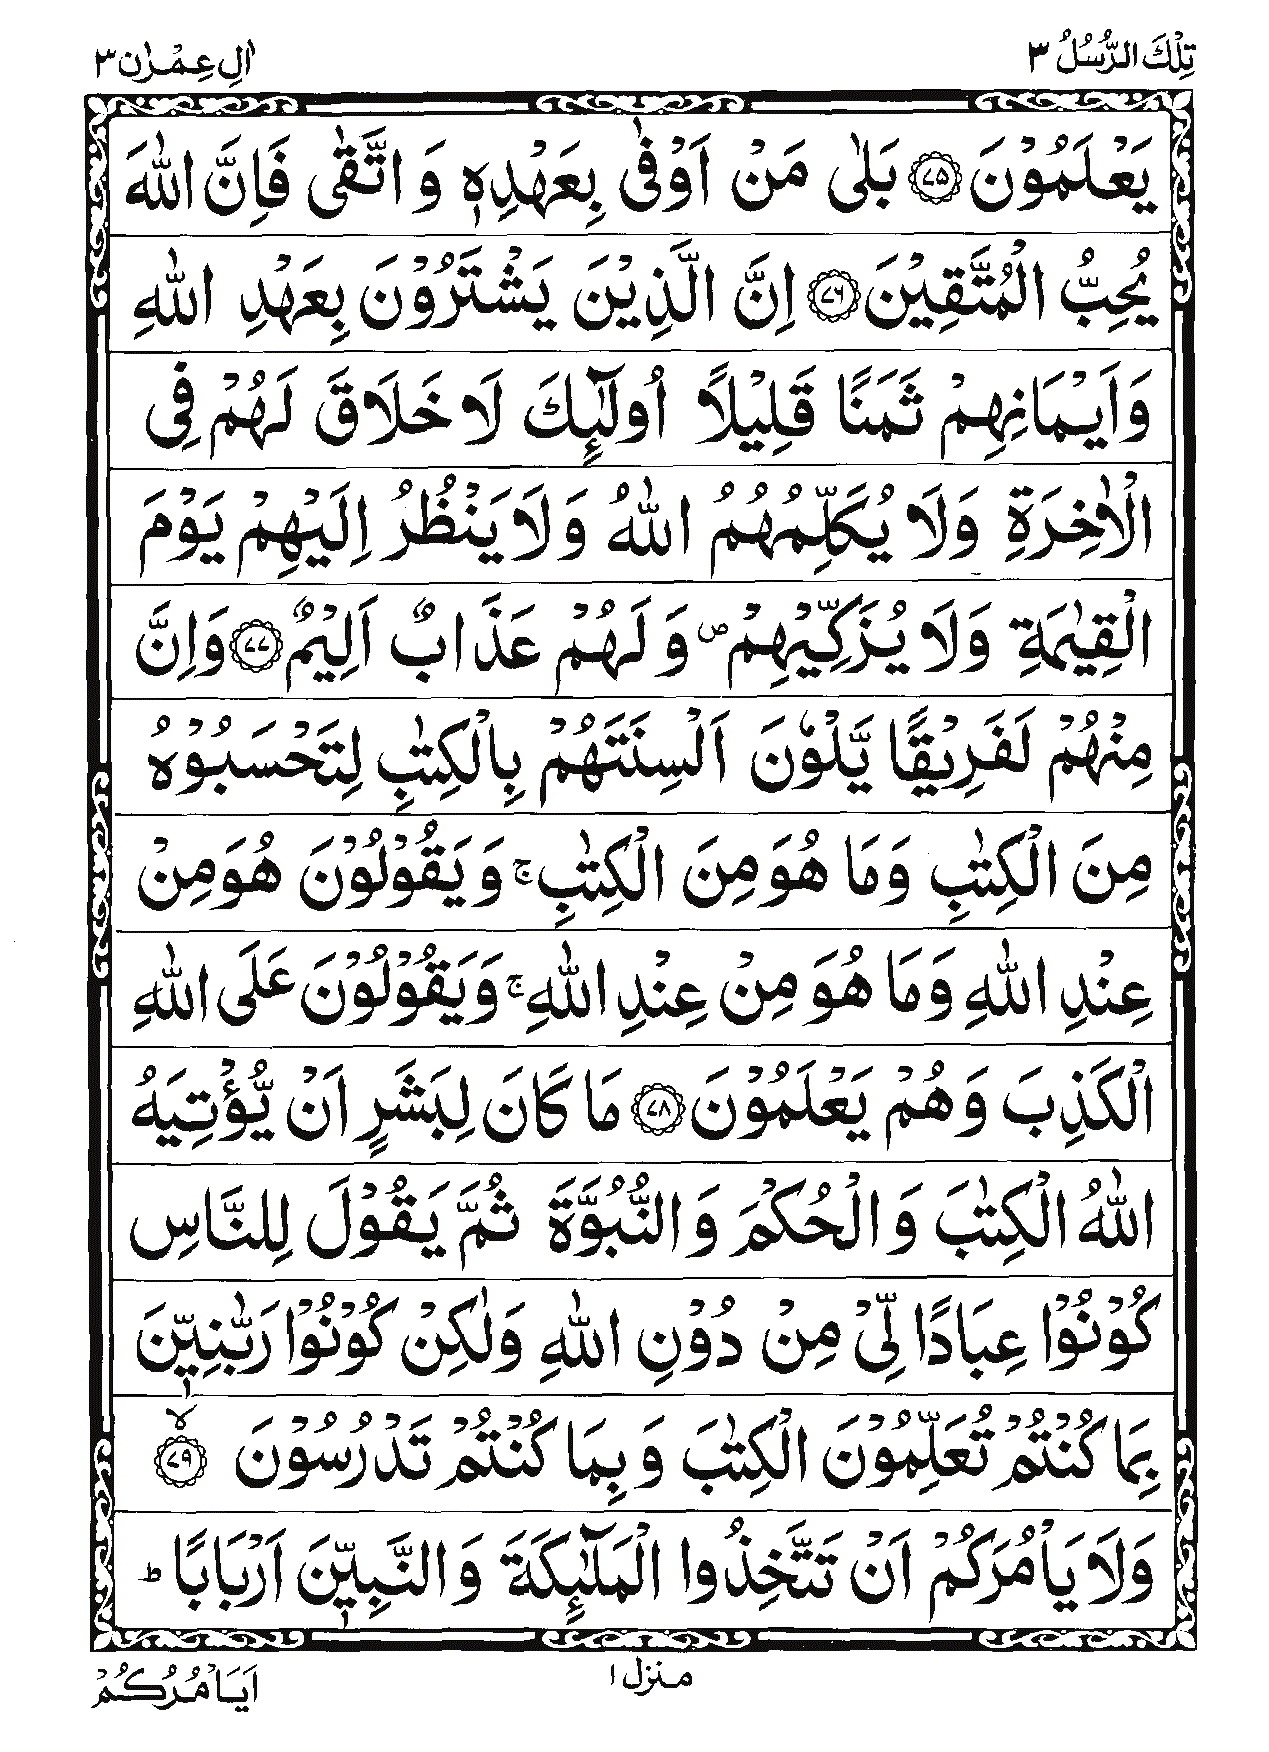 تِلْكَ الرُّسُلُ ٣
اٰلِ عِمْرٰن ٣
يَعْلَمُوْنَ ۝٧٥ بَلٰى مَنْ اَوْفٰى بِعَهْدِهٖ وَ اتَّقٰى فَاِنَّ اللّٰهَ
يُحِبُّ الْمُتَّقِيْنَ ۝٧٦ اِنَّ الَّذِيْنَ يَشْتَرُوْنَ بِعَهْدِ اللّٰهِ
وَاَيْمَانِهِمْ ثَمَنًا قَلِيْلًا اُولٰٓئِكَ لَا خَلَاقَ لَهُمْ فِى
الْاٰخِرَةِ وَلَا يُكَلِّمُهُمُ اللّٰهُ وَلَا يَنْظُرُ اِلَيْهِمْ يَوْمَ
الْقِيٰمَةِ وَلَا يُزَكِّيْهِمْ ۪ وَ لَهُمْ عَذَابٌ اَلِيْمٌ ۝٧٧ وَاِنَّ
مِنْهُمْ لَفَرِيْقًا يَّلْوٗنَ اَلْسِنَتَهُمْ بِالْكِتٰبِ لِتَحْسَبُوْهُ
مِنَ الْكِتٰبِ وَمَا هُوَ مِنَ الْكِتٰبِ ۚ وَيَقُوْلُوْنَ هُوَ مِنْ
عِنْدِ اللّٰهِ وَمَا هُوَ مِنْ عِنْدِ اللّٰهِ ۚ وَيَقُوْلُوْنَ عَلَى اللّٰهِ
الْكَذِبَ وَهُمْ يَعْلَمُوْنَ ۝٧٨ مَا كَانَ لِبَشَرٍ اَنْ يُّؤْتِيَهُ
اللّٰهُ الْكِتٰبَ وَ الْحُكْمَ وَ النُّبُوَّةَ ثُمَّ يَقُوْلَ لِلنَّاسِ
كُوْنُوْا عِبَادًا لِّىْ مِنْ دُوْنِ اللّٰهِ وَلٰكِنْ كُوْنُوْا رَبّٰنِيّٖنَ
بِمَا كُنْتُمْ تُعَلِّمُوْنَ الْكِتٰبَ وَ بِمَا كُنْتُمْ تَدْرُسُوْنَ ۝٧٩ۙ
وَلَا يَاْمُرَكُمْ اَنْ تَتَّخِذُوا الْمَلٰٓئِكَةَ وَ النَّبِيّٖنَ اَرْبَابًا ؕ
منزل ١
اَيَاْمُرُكُمْ